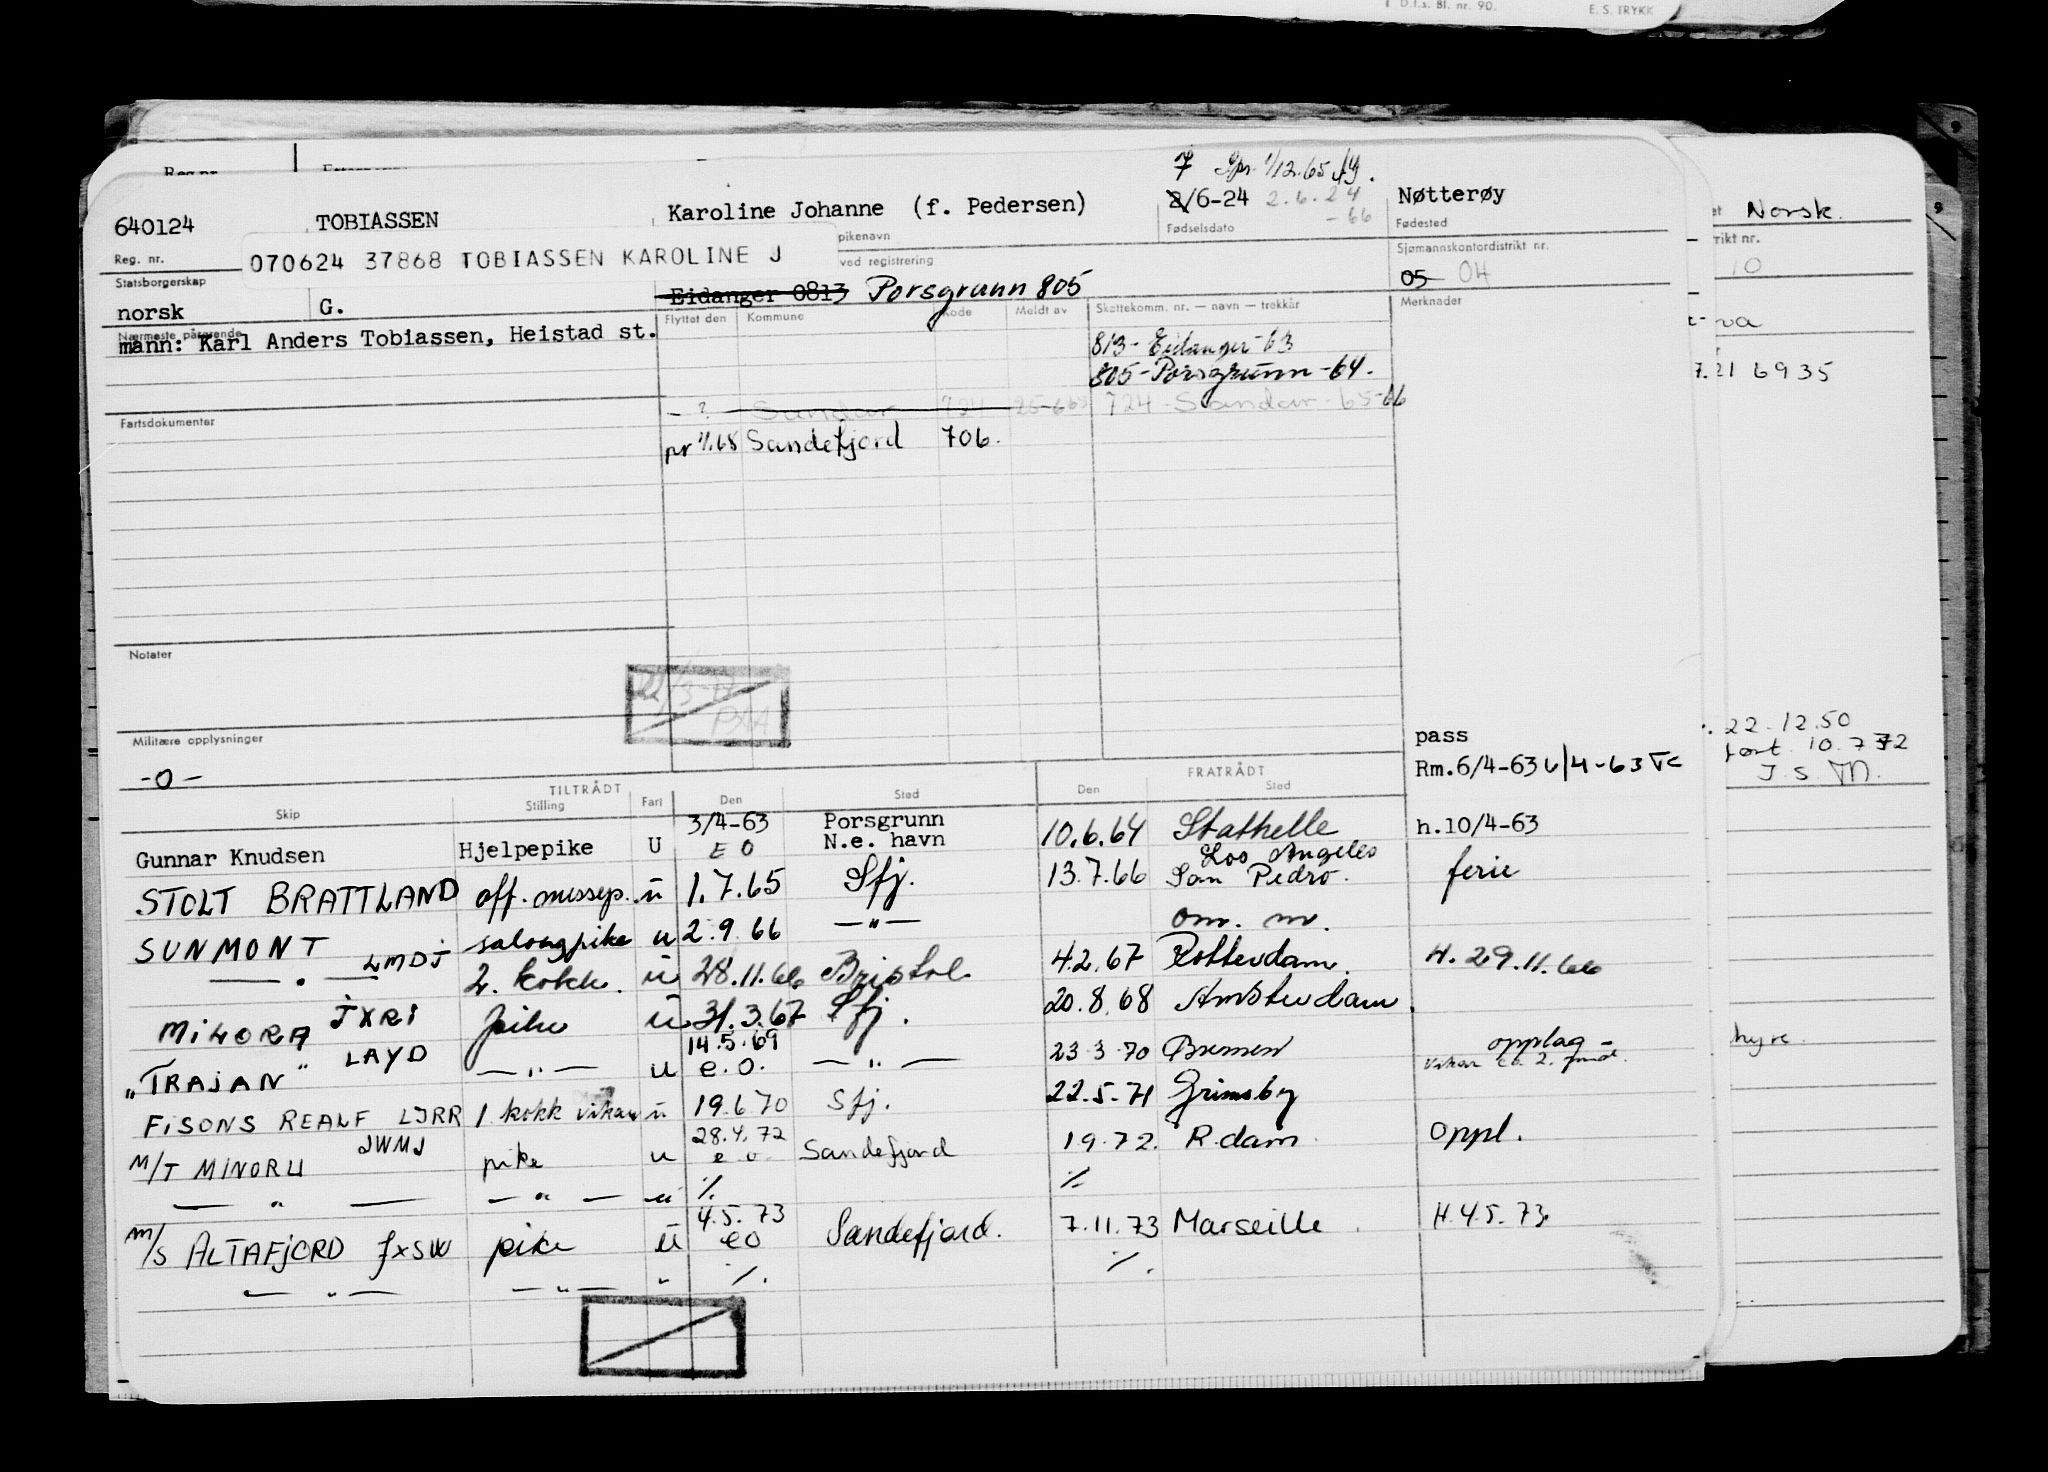 D.f.s. Bl. nr. 90. E. S. TRYKK
Reg.nr.
7 Spr. 1/12.65
640124 TOBIASSEN Karoline Johanne (f. Pedersen) 2/6-24 2.6.24 -66 Nøtterøy
Reg. nr. pikenavn Fødselsdato Fødested
070624 37868 TOBIASSEN KAROLINE J
Statsborgerskap ved registrering Sjømannskontordistrikt nr.
05 04
norsk G. Eidanger 0813 Porsgrunn 805
Nærmeste pårørende Flyttet den Kommune Kode Meldt av Skattekomm. nr. — navn — trekkår Merknader
mann: Karl Anders Tobiassen, Heistad st.
813- Eidanger-63
805-Porsgrunn-64.
- ? - Sandar 724 724-Sandar-65-66
Fartsdokumenter
pr 1/1.68 Sandefjord 706.
Notater
Militære opplysninger
-0-
pass
Rm.6/4-63 6/4-63
TILTRÅDT FRATRÅDT
Skip Stilling Fart Den Sted Den Sted
Gunnar Knudsen Hjelpepike U 3/4-63 E O Porsgrunn N.e. havn 10.6.64 Stathelle h.10/4-63
STOLT BRATTLAND off. messep. u 1.7.65 Sfj. 13.7.66 Los Angeles San Pedro. ferie
SUNMONT salongpike u 2.9.66 —"— om. m.
—"— LMDJ 2. kokk. u 28.11.66 Bristol 4.2.67 Rotterdam. H. 29.11.66
MILORA JXRI pike u 31.3.67 Sfj. 20.8.68 Amsterdam.
"TRAJAN" LAYD —"— u 14.5.69 e.o. —"— 23.3.70 Bremen opplag -
FISONS REALF LJRR 1. kokk vikar u 19.6.70 Sfj. 22.5.71 Grimsby
M/T MINORU JWMJ pike u 28.4.72 e o. Sandefjord 1.9.72. R.dam. oppl.
—"— —"— u ٪. ٪
M/S ALTAFJORD JXSW pike u 4.5.73 eo Sandefjord. 7.11.73 Marseille. H.4.5.73.
—"— —"— " ٪. ٪.
Norsk.
10
21 6935
22.12.50
10.7.72
J. S. M.
hyre.